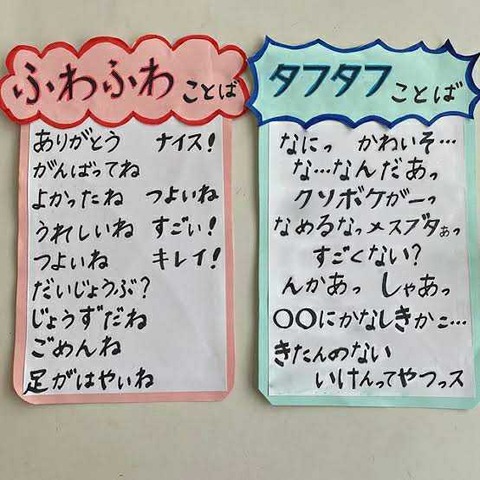 ふわふわことば
ありがとう　ナイス！
がんばってね
よかったね　つよいね
うれしいね　すごい！
つよいね　キレイ！
だいじょうぶ？
じょうずだね
ごめんね
足がはやいね
タフタフことば
なにっ　かわいそ…
な…なんだあっ
クソボケがーっ
なめるなっメスブタぁっ
すごくない？
んかあっ　しゃあっ
〇〇にかなしきかこ…
きたんのない
いけんってやつっス